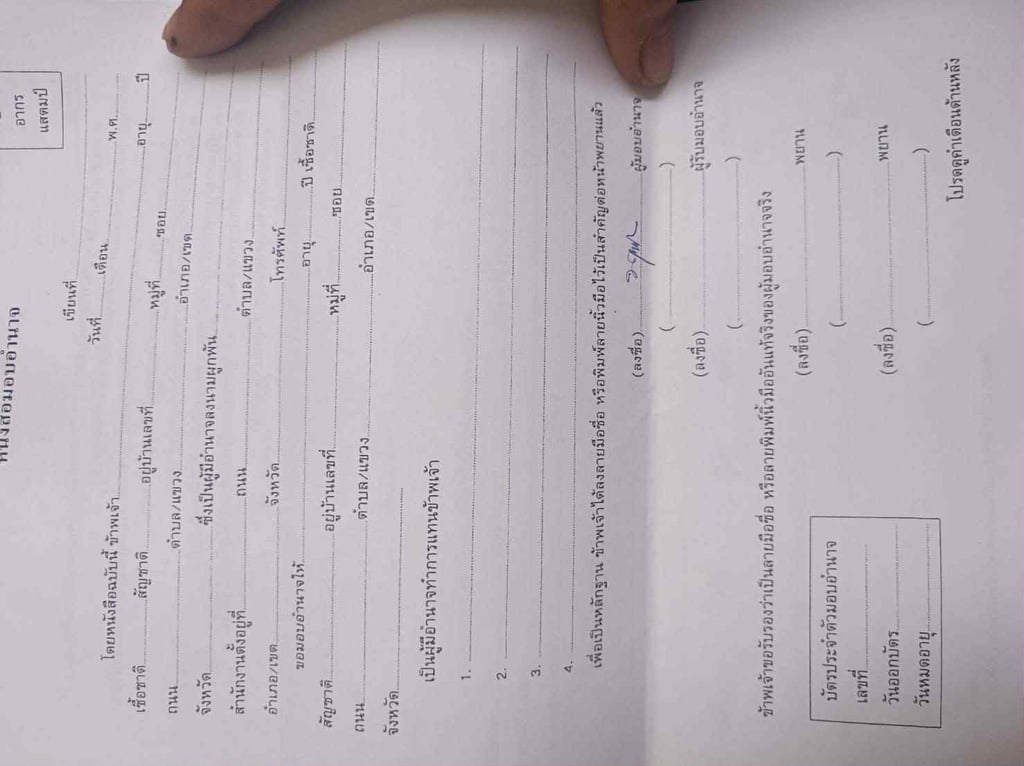 หนังสือมอบอำนาจ
อากร
แสตมป์
เขียนที่
วันที่ เดือน พ.ศ.
โดยหนังสือฉบับนี้ ข้าพเจ้า
เชื้อชาติ สัญชาติ อยู่บ้านเลขที่ หมู่ที่ อายุ ปี
ถนน ตำบล/แขวง ซอย
จังหวัด ซึ่งเป็นผู้มีอำนาจลงนามผูกพัน อำเภอ/เขต
สำนักงานตั้งอยู่ที่ ถนน ตำบล/แขวง
อำเภอ/เขต จังหวัด โทรศัพท์
ขอมอบอำนาจให้ อายุ ปี เชื้อชาติ
สัญชาติ อยู่บ้านเลขที่ หมู่ที่ ซอย
ถนน ตำบล/แขวง อำเภอ/เขต
จังหวัด
เป็นผู้มีอำนาจทำการแทนข้าพเจ้า
1.
2.
3.
4.
เพื่อเป็นหลักฐาน ข้าพเจ้าได้ลงลายมือชื่อ หรือพิมพ์ลายนิ้วมือไว้เป็นสำคัญต่อหน้าพยานแล้ว
(ลงชื่อ) ผู้มอบอำนาจ
( )
(ลงชื่อ) ผู้รับมอบอำนาจ
( )
ข้าพเจ้าขอรับรองว่าเป็นลายมือชื่อ หรือลายพิมพ์นิ้วมืออันแท้จริงของผู้มอบอำนาจจริง
(ลงชื่อ) พยาน
( )
(ลงชื่อ) พยาน
( )
บัตรประจำตัวมอบอำนาจ
เลขที่
วันออกบัตร
วันหมดอายุ
โปรดดูคำเตือนด้านหลัง